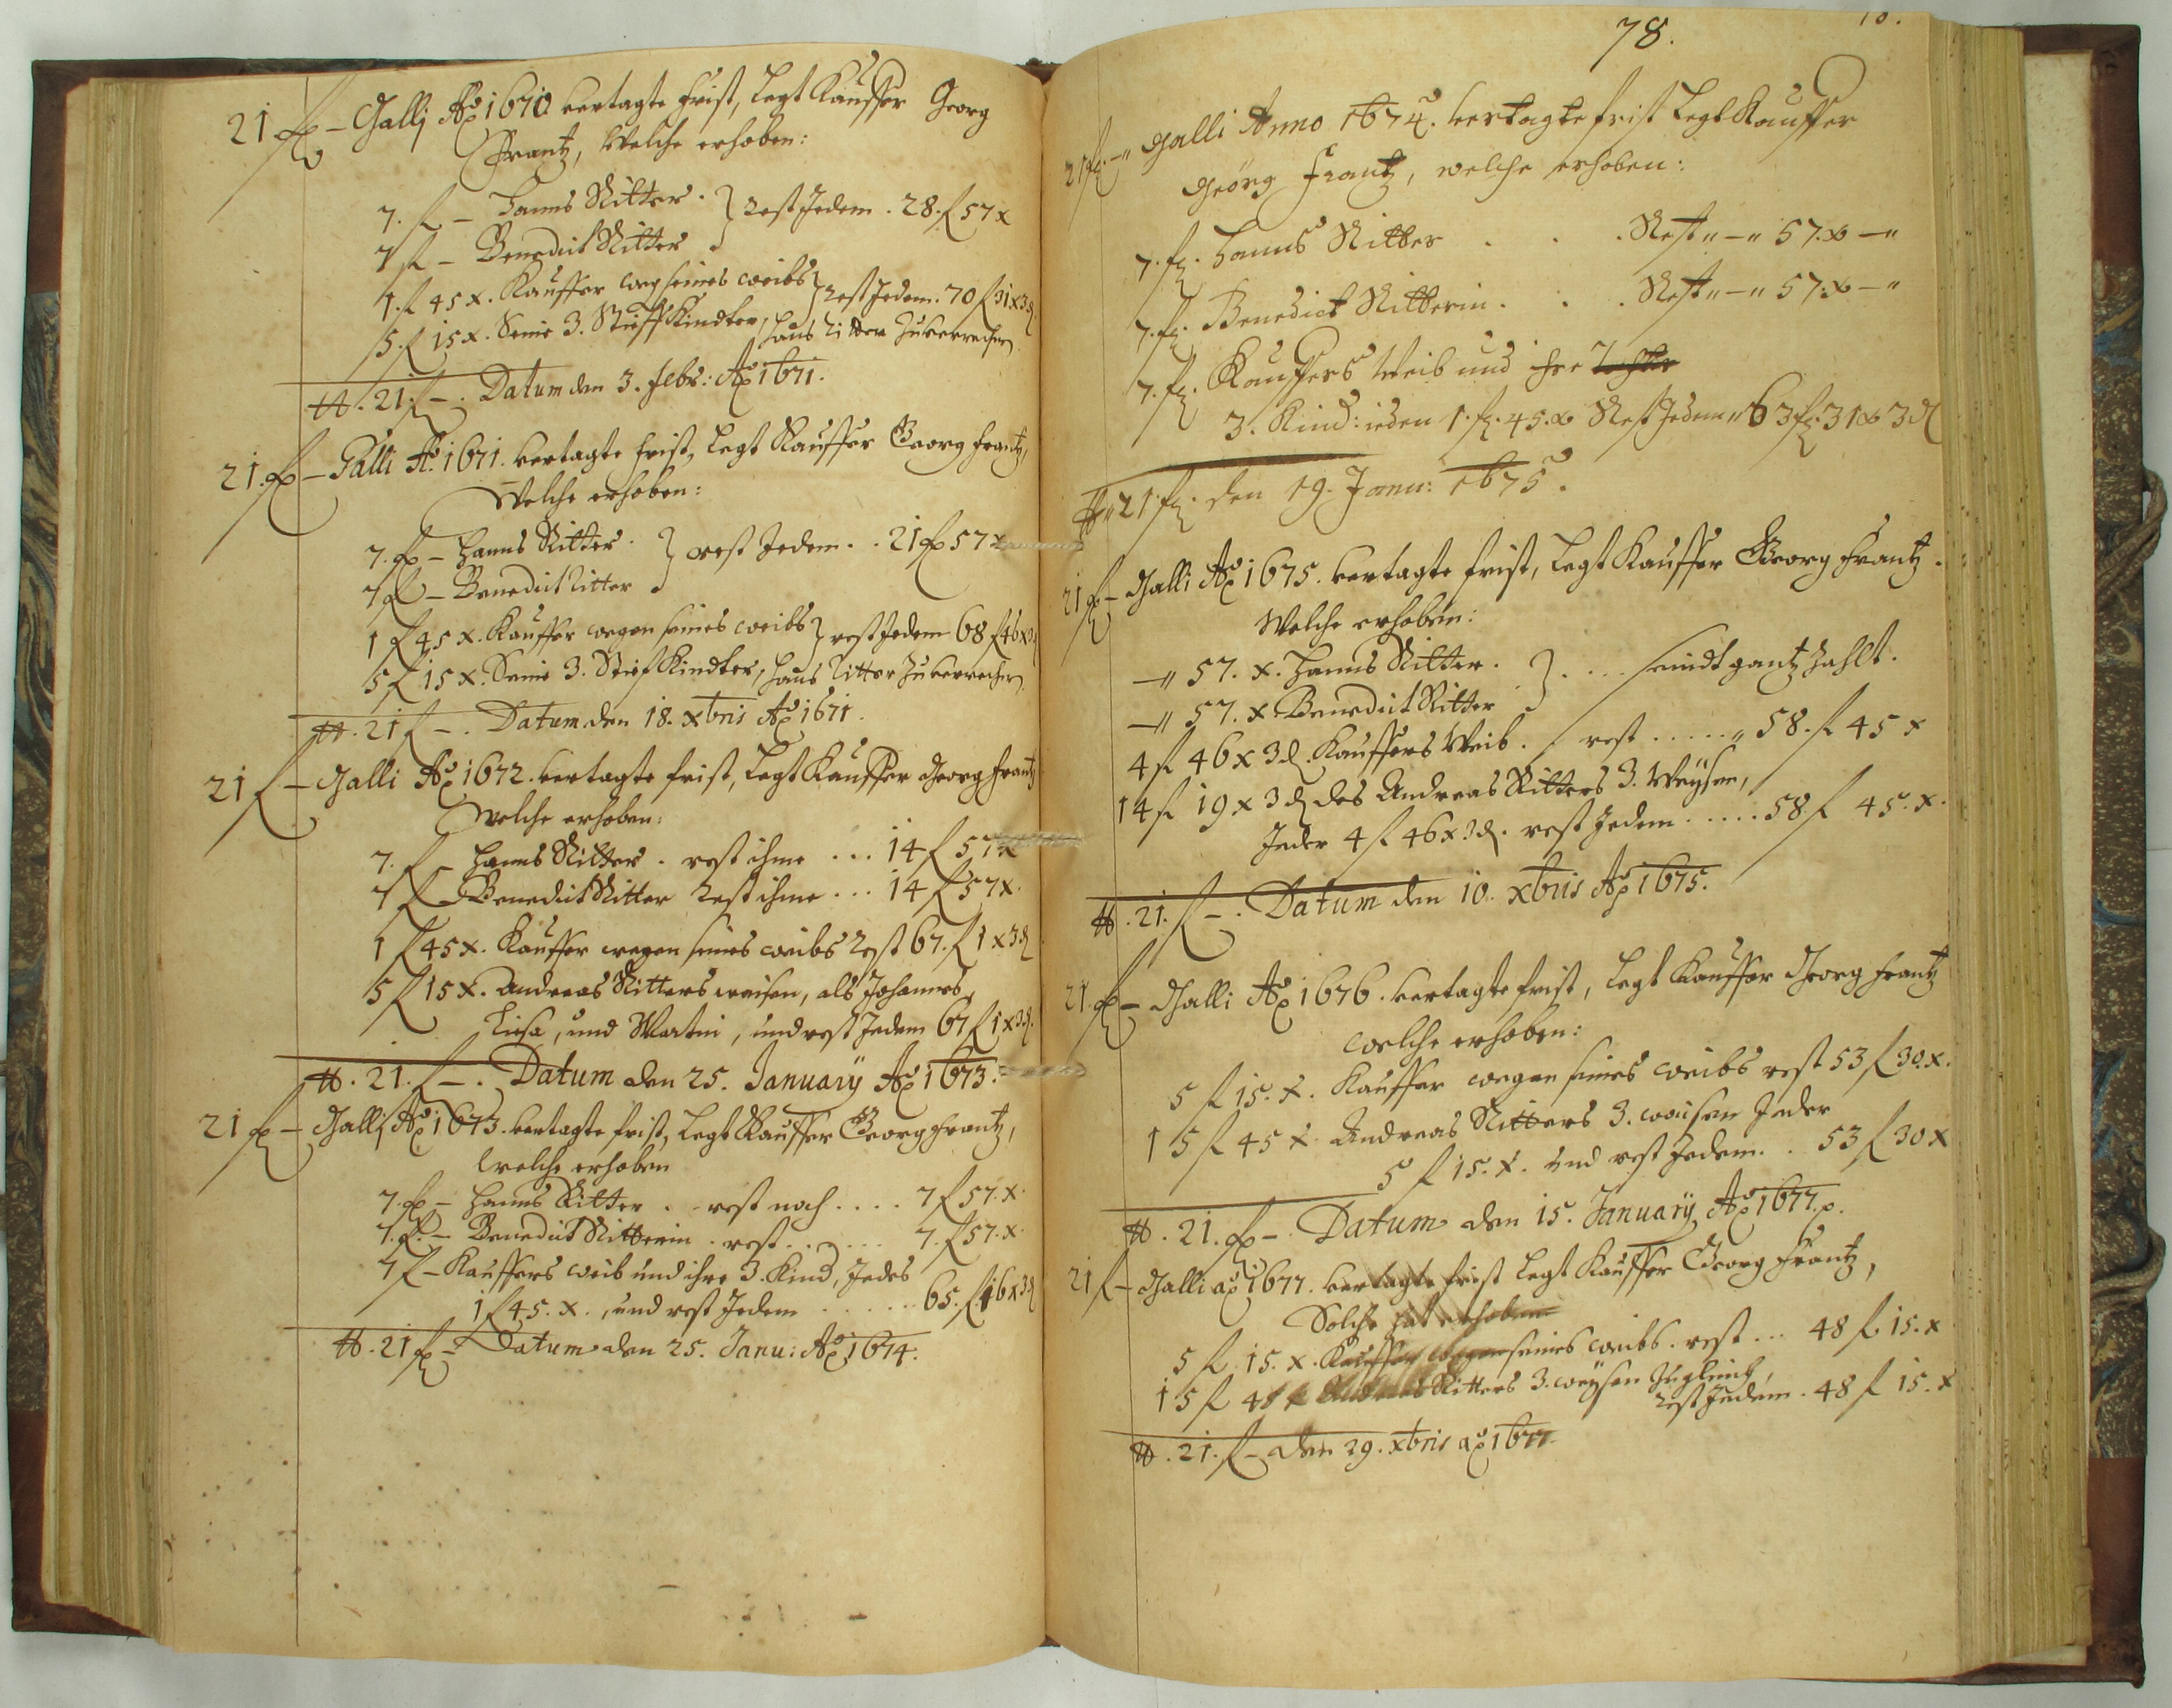 21 fl – Gallj Aõ 1670 vertagte Frist, Legt Kauffer Georg
Frantz, Welche erhoben:
7. fl – Hanns Ritter . } rest Jedem . 28. fl 57 x
7 fl – Benedict Ritter
1. fl 45 x. Kauffer weg seines weibs } rest Jedem. 70 fl 31 x 3 d.
5. fl 15 x. Seine 3. Stieff Kindter, Hans Ritter Zuverrechen
tt. 21. fl – . Datum den 3. Febr: Aõ 1671.
21. fl – Galli Aõ 1671. vertagte Frist, Legt Kauffer Georg Frantz,
Welche erhoben:
7. fl – Hanns Ritter . } rest Jedem . . 21 fl 57 x
7 fl – Benedict Ritter
1 fl 45 x. Kauffer wegen seines weibs } rest Jedem 68 fl 46 x 3 d
5 fl 15 x. Seine 3. Stief Kindter, Hans Ritter Zuverrechen
tt. 21 fl – . Datum den 18. Xbris Aõ 1671.
21 fl – Galli Aõ 1672. vertagte Frist, Legt Kauffer Georg Frantz
Welche erhoben:
7. fl – Hanns Ritter . rest ihme ... 14 fl 57 x
7 fl – Benedict Ritter rest ihme ... 14 fl 57 x.
1 fl 45 x. Kauffer wegen seines weibs rest 67. fl 1 x 3 d
5 fl 15 x. Andreas Ritters waisen, als Johannes,
Liesa, und Martin, und rest Jedem 67 fl 1 x 3 d.
tt. 21. fl – . Datum den 25. Januarÿ Aõ 1673.
21 fl – Gallj Aõ 1673. vertagte Frist, Legt Kauffer Georg Frantz,
welche erhoben
7. fl – Hanns Ritter . . rest noch .... 7 fl 57. x.
7. fl. – Benedict Ritterin . rest ...... 7. fl 57. x.
7 fl – Kauffers weib und ihre 3. Kind, Jedes
1 fl 45. x., und rest Jedem ..... 65. fl 16 x 3 d
tt. 21 fl – Datum den 25. Janu: Aõ 1674.
78.
21 fl. –" Galli Anno 1674. vertagte frist Legt Kauffer
Georg Frantz, welche erhoben:
7. fl. Hanns Ritter . . . Rest " – " 57. x – "
7. fl. Benedict Ritterin . . . Rest " – " 57. x – "
7. fl. Kauffers Weib und ihre
3. Kind: ieden 1. fl. 45. x Rest Jedem " 63 fl. 31 x 3 d
tt " 21 fl. den 19. Janu: 1675.
21 fl – Galli Aõ 1675. vertagte frist, Legt Kauffer Georg Frantz.
Welche erhoben:
–" 57. x. Hanns Ritter . } . ... seindt gantz Zahlt.
–" 57. x Benedict Ritter
4 fl 46 x 3 d. Kauffers Weib . rest ..... " 58. fl 45 x
14 fl 19 x 3 d des Andreas Ritters 3. Waysen,
Jeder 4 fl 46 x 3 d. rest Jedem ..... 58 fl 45. x.
tt. 21. fl – . Datum den 10. Xbris Aõ 1675.
21. fl – Galli Aõ 1676. vertagte frist, Legt Kauffer Georg Frantz
welche erhoben:
5 fl 15. x. Kauffer wegen seines weibs rest 53 fl 30. x.
15 fl 45 x Andreas Ritters 3. waisen Jeder
5 fl 15. x. und rest Jedem. . 53 fl 30 x
tt. 21. fl – . Datum den 15. Januarÿ Aõ 1677. p.
21 fl – Galli aõ 1677. vertagte frist Legt Kauffer Georg Frantz,
Solche hat erhoben
5 fl 15. x. Kauffer wegen seines weibs . rest ... 48 fl 15. x
15 fl 45 x Andreas Ritters 3. weysen Zugleich,
rest Jedem . 48 fl 15. x
tt. 21. fl – den 29. Xbris aõ 1677